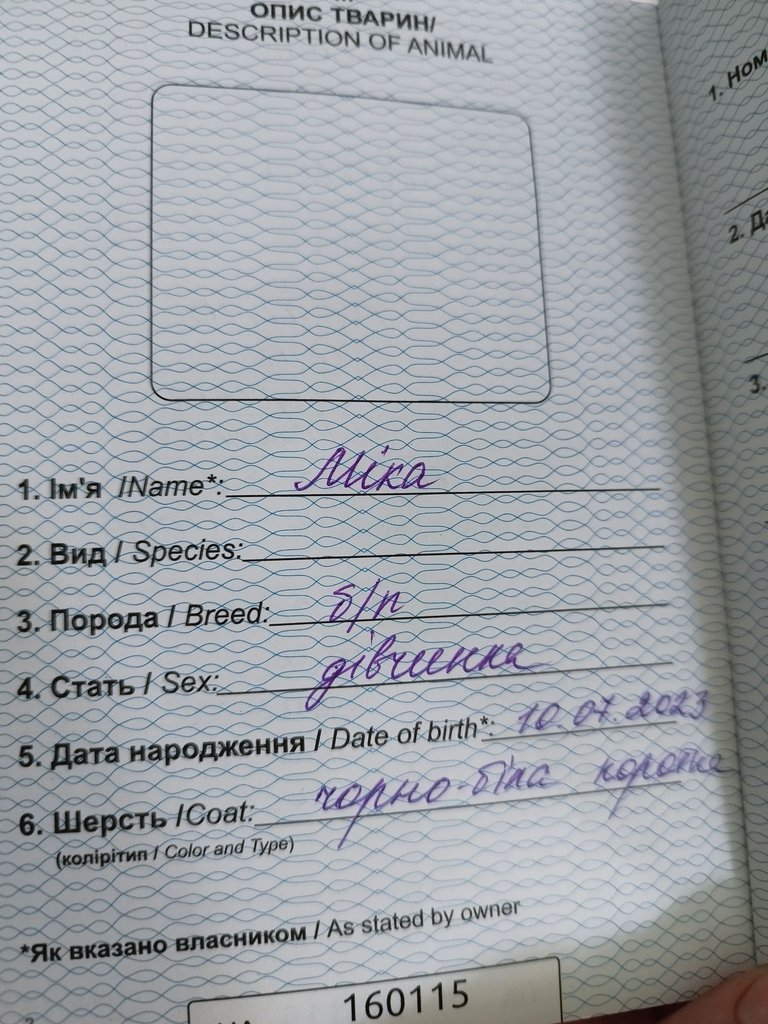 ОПИС ТВАРИН/
DESCRIPTION OF ANIMAL
1. Ім'я /Name*: Міка
2. Вид / Species:
3. Порода / Breed: б/п
4. Стать / Sex: дівчинка
5. Дата народження / Date of birth*: 10.07.2023
6. Шерсть /Coat: чорно-біла коротка
(колір і тип / Color and Type)
*Як вказано власником / As stated by owner
160115
1. Ном
2. Да
3.